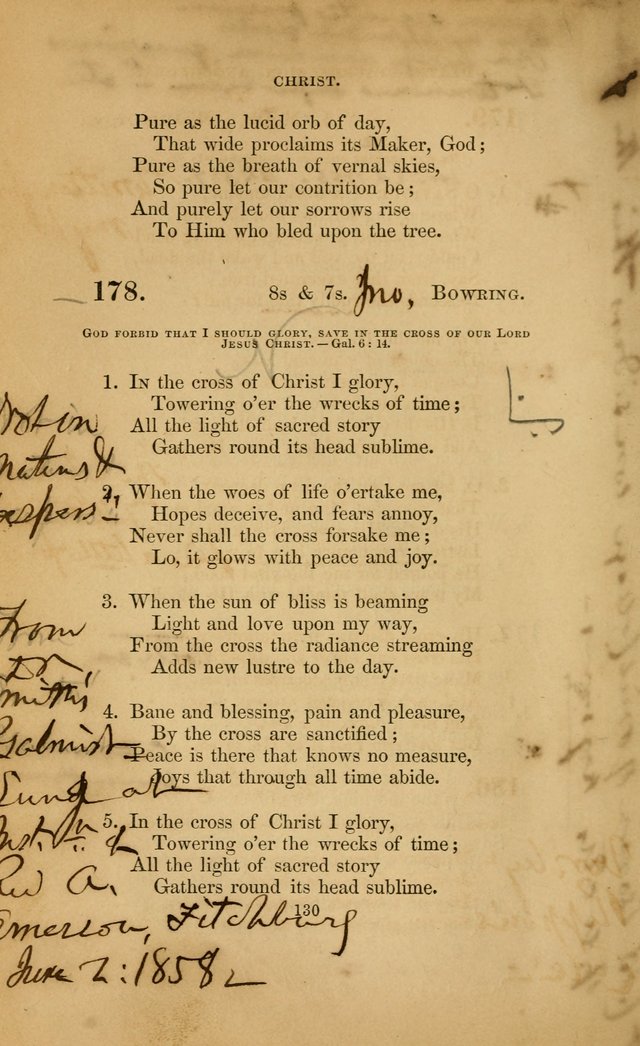 CHRIST.
Pure as the lucid orb of day,
That wide proclaims its Maker, God;
Pure as the breath of vernal skies,
So pure let our contrition be;
And purely let our sorrows rise
To Him who bled upon the tree.
178. 8s & 7s. Jno, BOWRING.
GOD FORBID THAT I SHOULD GLORY, SAVE IN THE CROSS OF OUR LORD
JESUS CHRIST.—Gal. 6: 14.
1. IN the cross of Christ I glory,
Towering o'er the wrecks of time;
All the light of sacred story
Gathers round its head sublime.
2. When the woes of life o'ertake me,
Hopes deceive, and fears annoy,
Never shall the cross forsake me;
Lo, it glows with peace and joy.
3. When the sun of bliss is beaming
Light and love upon my way,
From the cross the radiance streaming
Adds new lustre to the day.
4. Bane and blessing, pain and pleasure,
By the cross are sanctified;
Peace is there that knows no measure,
Joys that through all time abide.
5. In the cross of Christ I glory,
Towering o'er the wrecks of time;
All the light of sacred story
Gathers round its head sublime.
130
Not in
Matins &
Vespers
From
Dr,
Smith's
Psalmist
Sung at
Inst. of
Rev A.
Emerson, Fitchburg
June 2: 1858